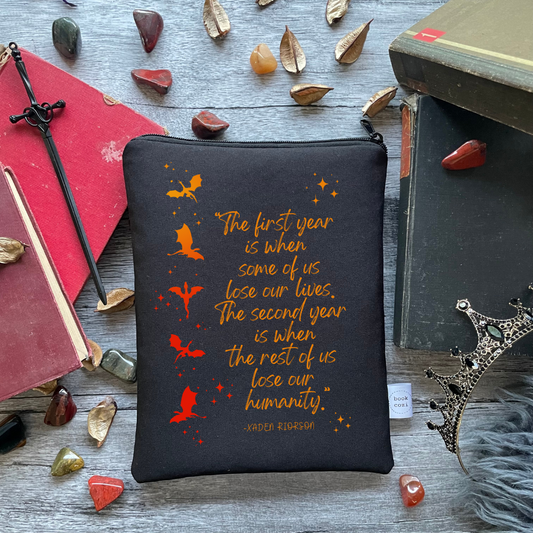 "The first year
is when
some of us
lose our lives.
The second year
is when
the rest of us
lose our
humanity."
-XADEN RIORSON
book
cozi
1